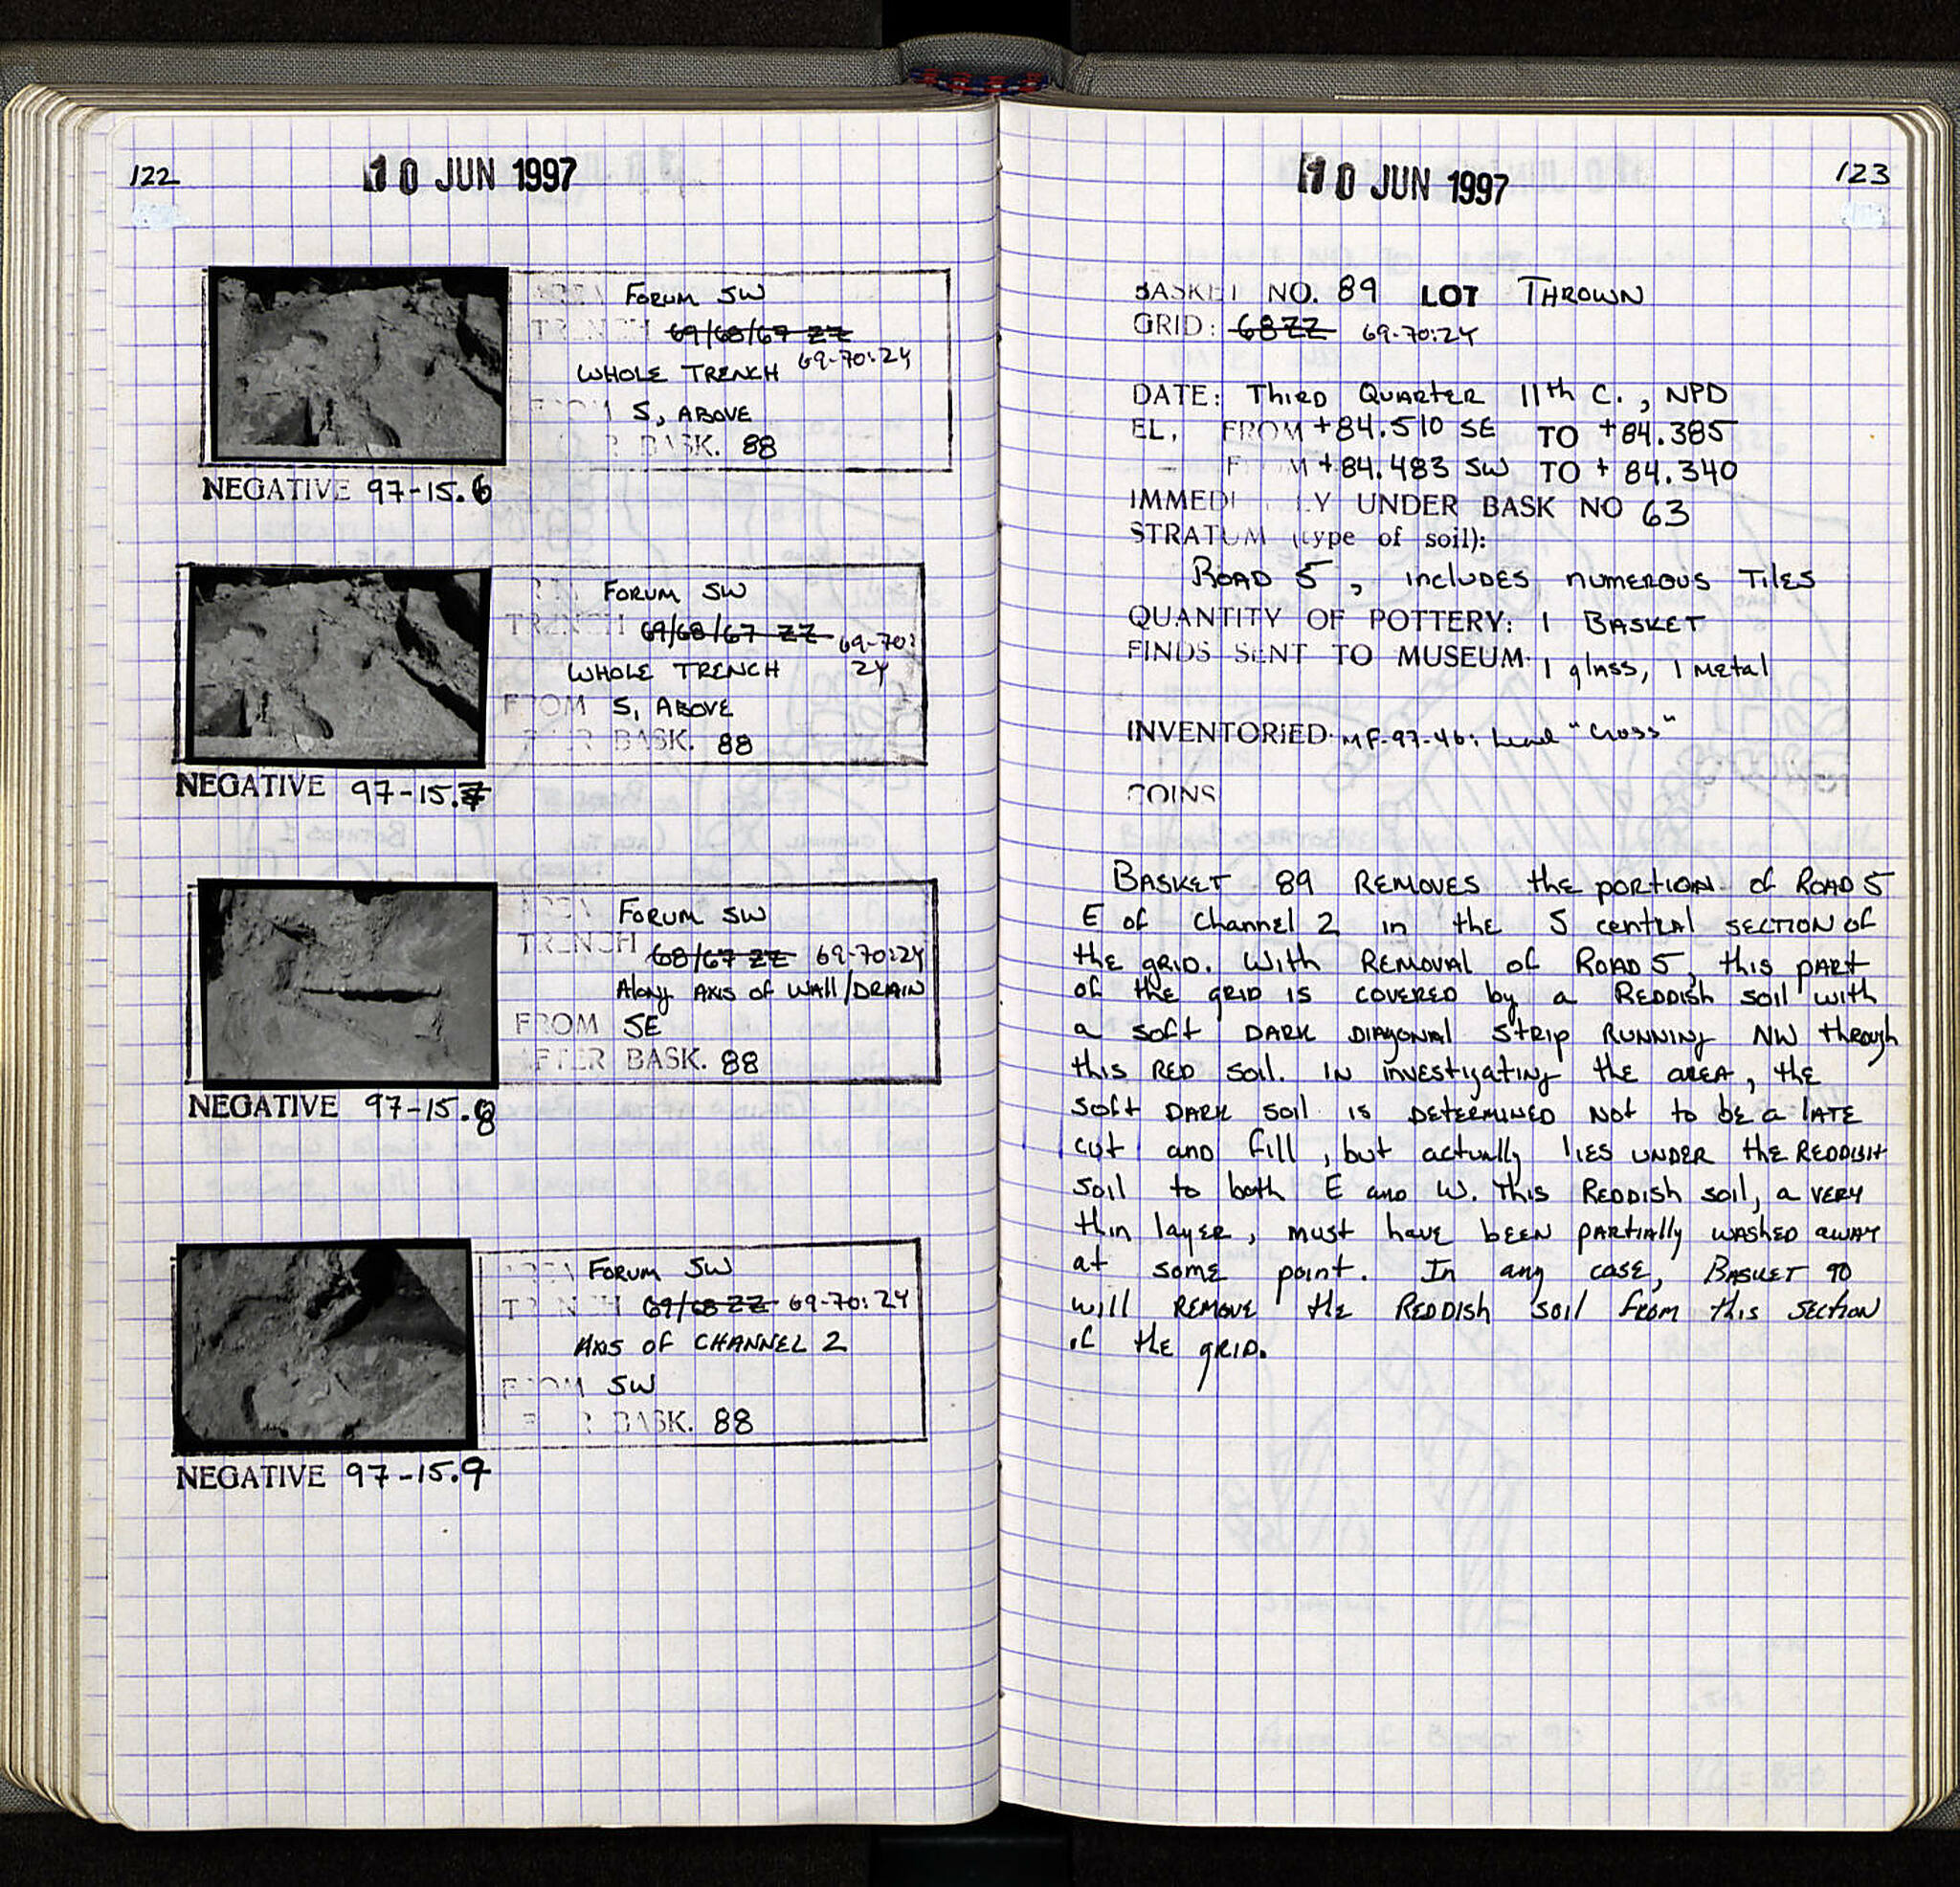 122
10 JUN 1997
AREA FORUM SW
TRENCH 69/68/67 ZZ
69-70:24
WHOLE TRENCH
FROM S, ABOVE
AFTER BASK. 88
NEGATIVE 97-15.6
AREA FORUM SW
TRENCH 69/68/67 ZZ 69-70:
WHOLE TRENCH 24
FROM S, ABOVE
AFTER BASK. 88
NEGATIVE 97-15.7
AREA FORUM SW
TRENCH 68/67 ZZ 69-70:24
Along AXIS of WALL/DRAIN
FROM SE
AFTER BASK. 88
NEGATIVE 97-15.8
AREA FORUM SW
TRENCH 69/68 ZZ 69-70:24
AXIS of CHANNEL 2
FROM SW
AFTER BASK. 88
NEGATIVE 97-15.9
10 JUN 1997
123
BASKET NO. 89 LOT THROWN
GRID: 68ZZ 69-70:24
DATE: THIRD QUARTER 11th C., NPD
EL. FROM +84.510 SE TO +84.385
- FROM +84.483 SW TO + 84.340
IMMEDI LY UNDER BASK NO 63
STRATUM (type of soil):
ROAD 5, includes numerous Tiles
QUANTITY OF POTTERY: 1 BASKET
FINDS SENT TO MUSEUM: 1 glass, 1 metal
INVENTORIED: MF-97-46: Lead "Cross"
COINS
BASKET 89 REMOVES the portion of ROAD 5
E of Channel 2 in the S central SECTION of
the GRID. With REMOVAL of ROAD 5, this PART
of the GRID IS COVERED by a REDDISH soil with
a soft DARK DIAGONAL STRIP RUNNING NW through
this RED soil. IN investigating the AREA, the
soft DARK soil is DETERMINED NOT to be a LATE
cut and fill, but actually lies UNDER the REDDISH
soil to both E and W. This REDDISH soil, a VERY
thin layer, must have been partially washed away
at some point. In any case, BASKET 90
will REMOVE the REDDISH soil from this section
of the GRID.